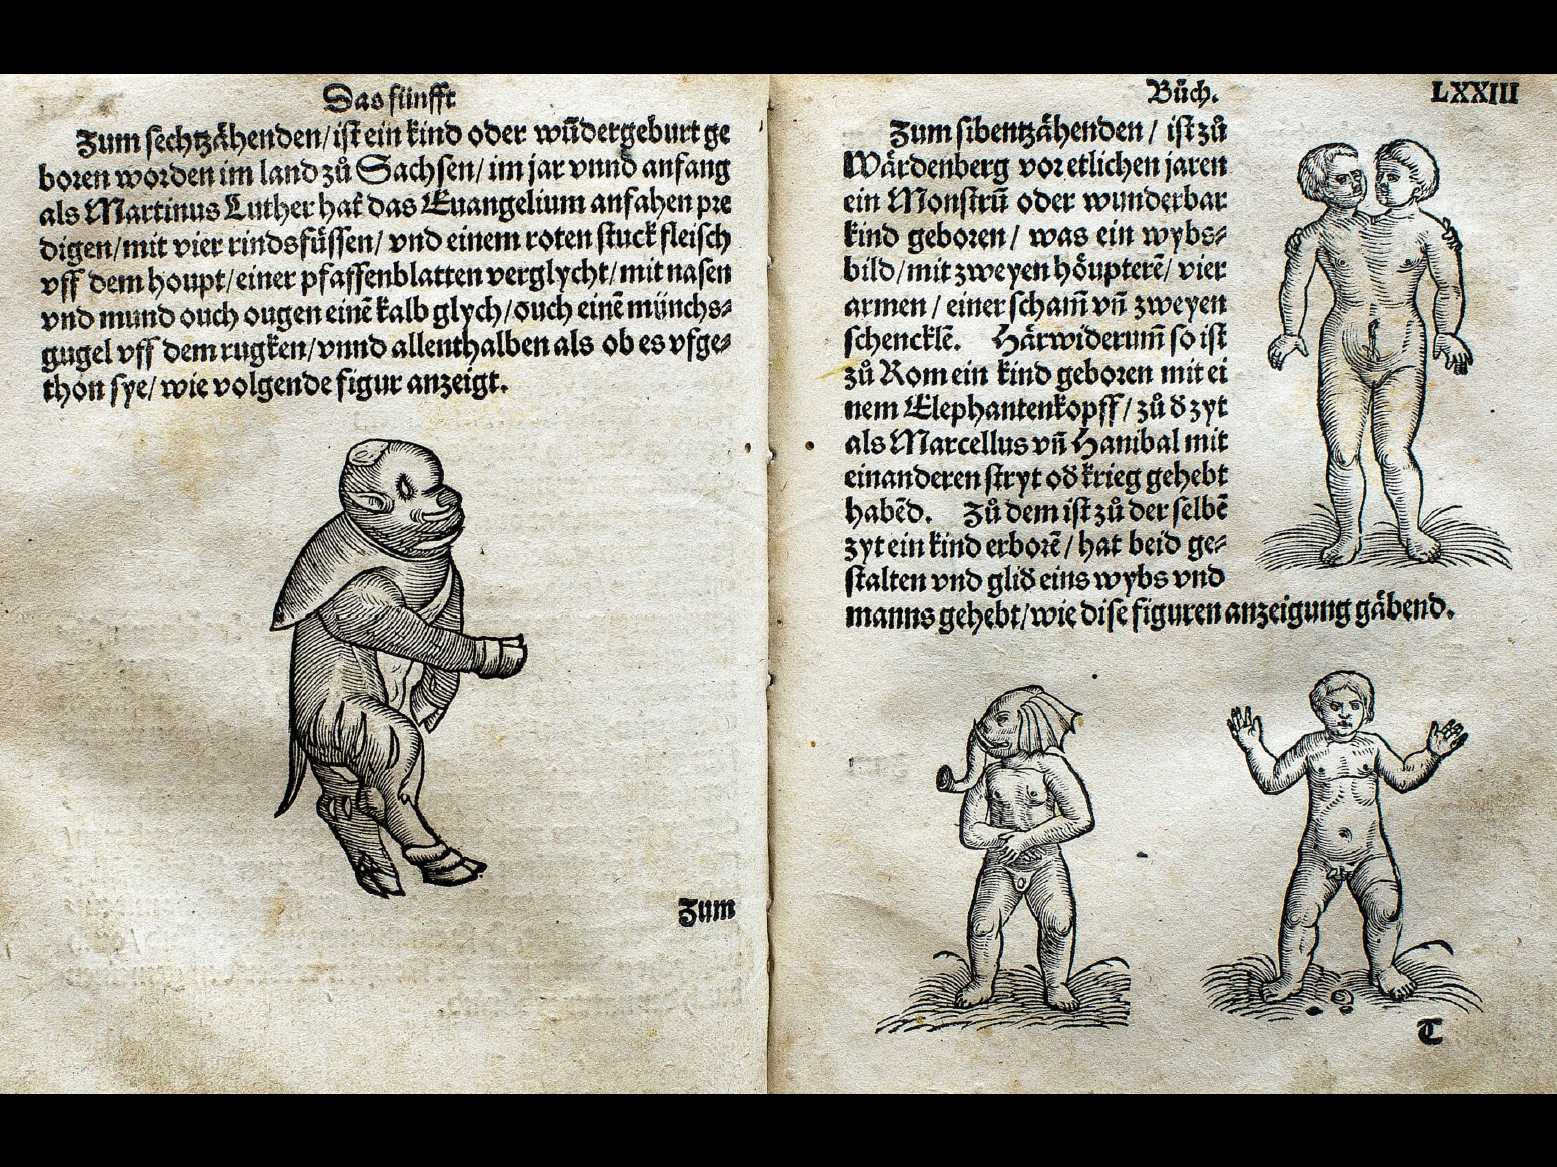 Das fünfft
Zum sechtzähenden/ ist ein kind oder wūdergeburt ge
boren worden im land zů Sachsen/ im jar vnnd anfang
als Martinus Luther hat das Euangelium anfahen pre
digen/ mit vier rindsfüssen/ vnd einem roten stuck fleisch
vff dem houpt/ einer pfaffenblatten verglycht/ mit nasen
vnd mund ouch ougen einē kalb glych/ ouch einē münchs⸗
gugel vff dem rugken/ vnnd allenthalben als ob es vfge⸗
thon sye/ wie volgende figur anzeigt.
Zum
Bůch. LXXIII
Zum sibentzähenden/ ist zů
Wärdenberg vor etlichen jaren
ein Monstrū oder wunderbar
kind geboren/ was ein wybs⸗
bild/ mit zweyen höupterē/ vier
armen/ einer scham̄ vn̄ zweyen
schencklē. Härwiderum̄ so ist
zů Rom ein kind geboren mit ei
nem Elephantenkopff/ zů d zyt
als Marcellus vn̄ Hanibal mit
einanderen stryt od krieg gehebt
habēd. Zů dem ist zů der selbē
zyt ein kind erborē/ hat beid ge⸗
stalten vnd glid eins wybs vnd
manns gehebt/ wie dise figuren anzeigung gäbend.
T